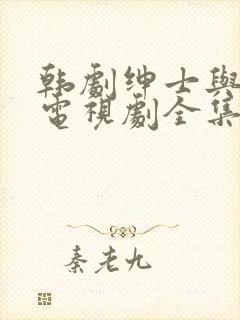 韩劇绅士與
電視劇全集
秦老九